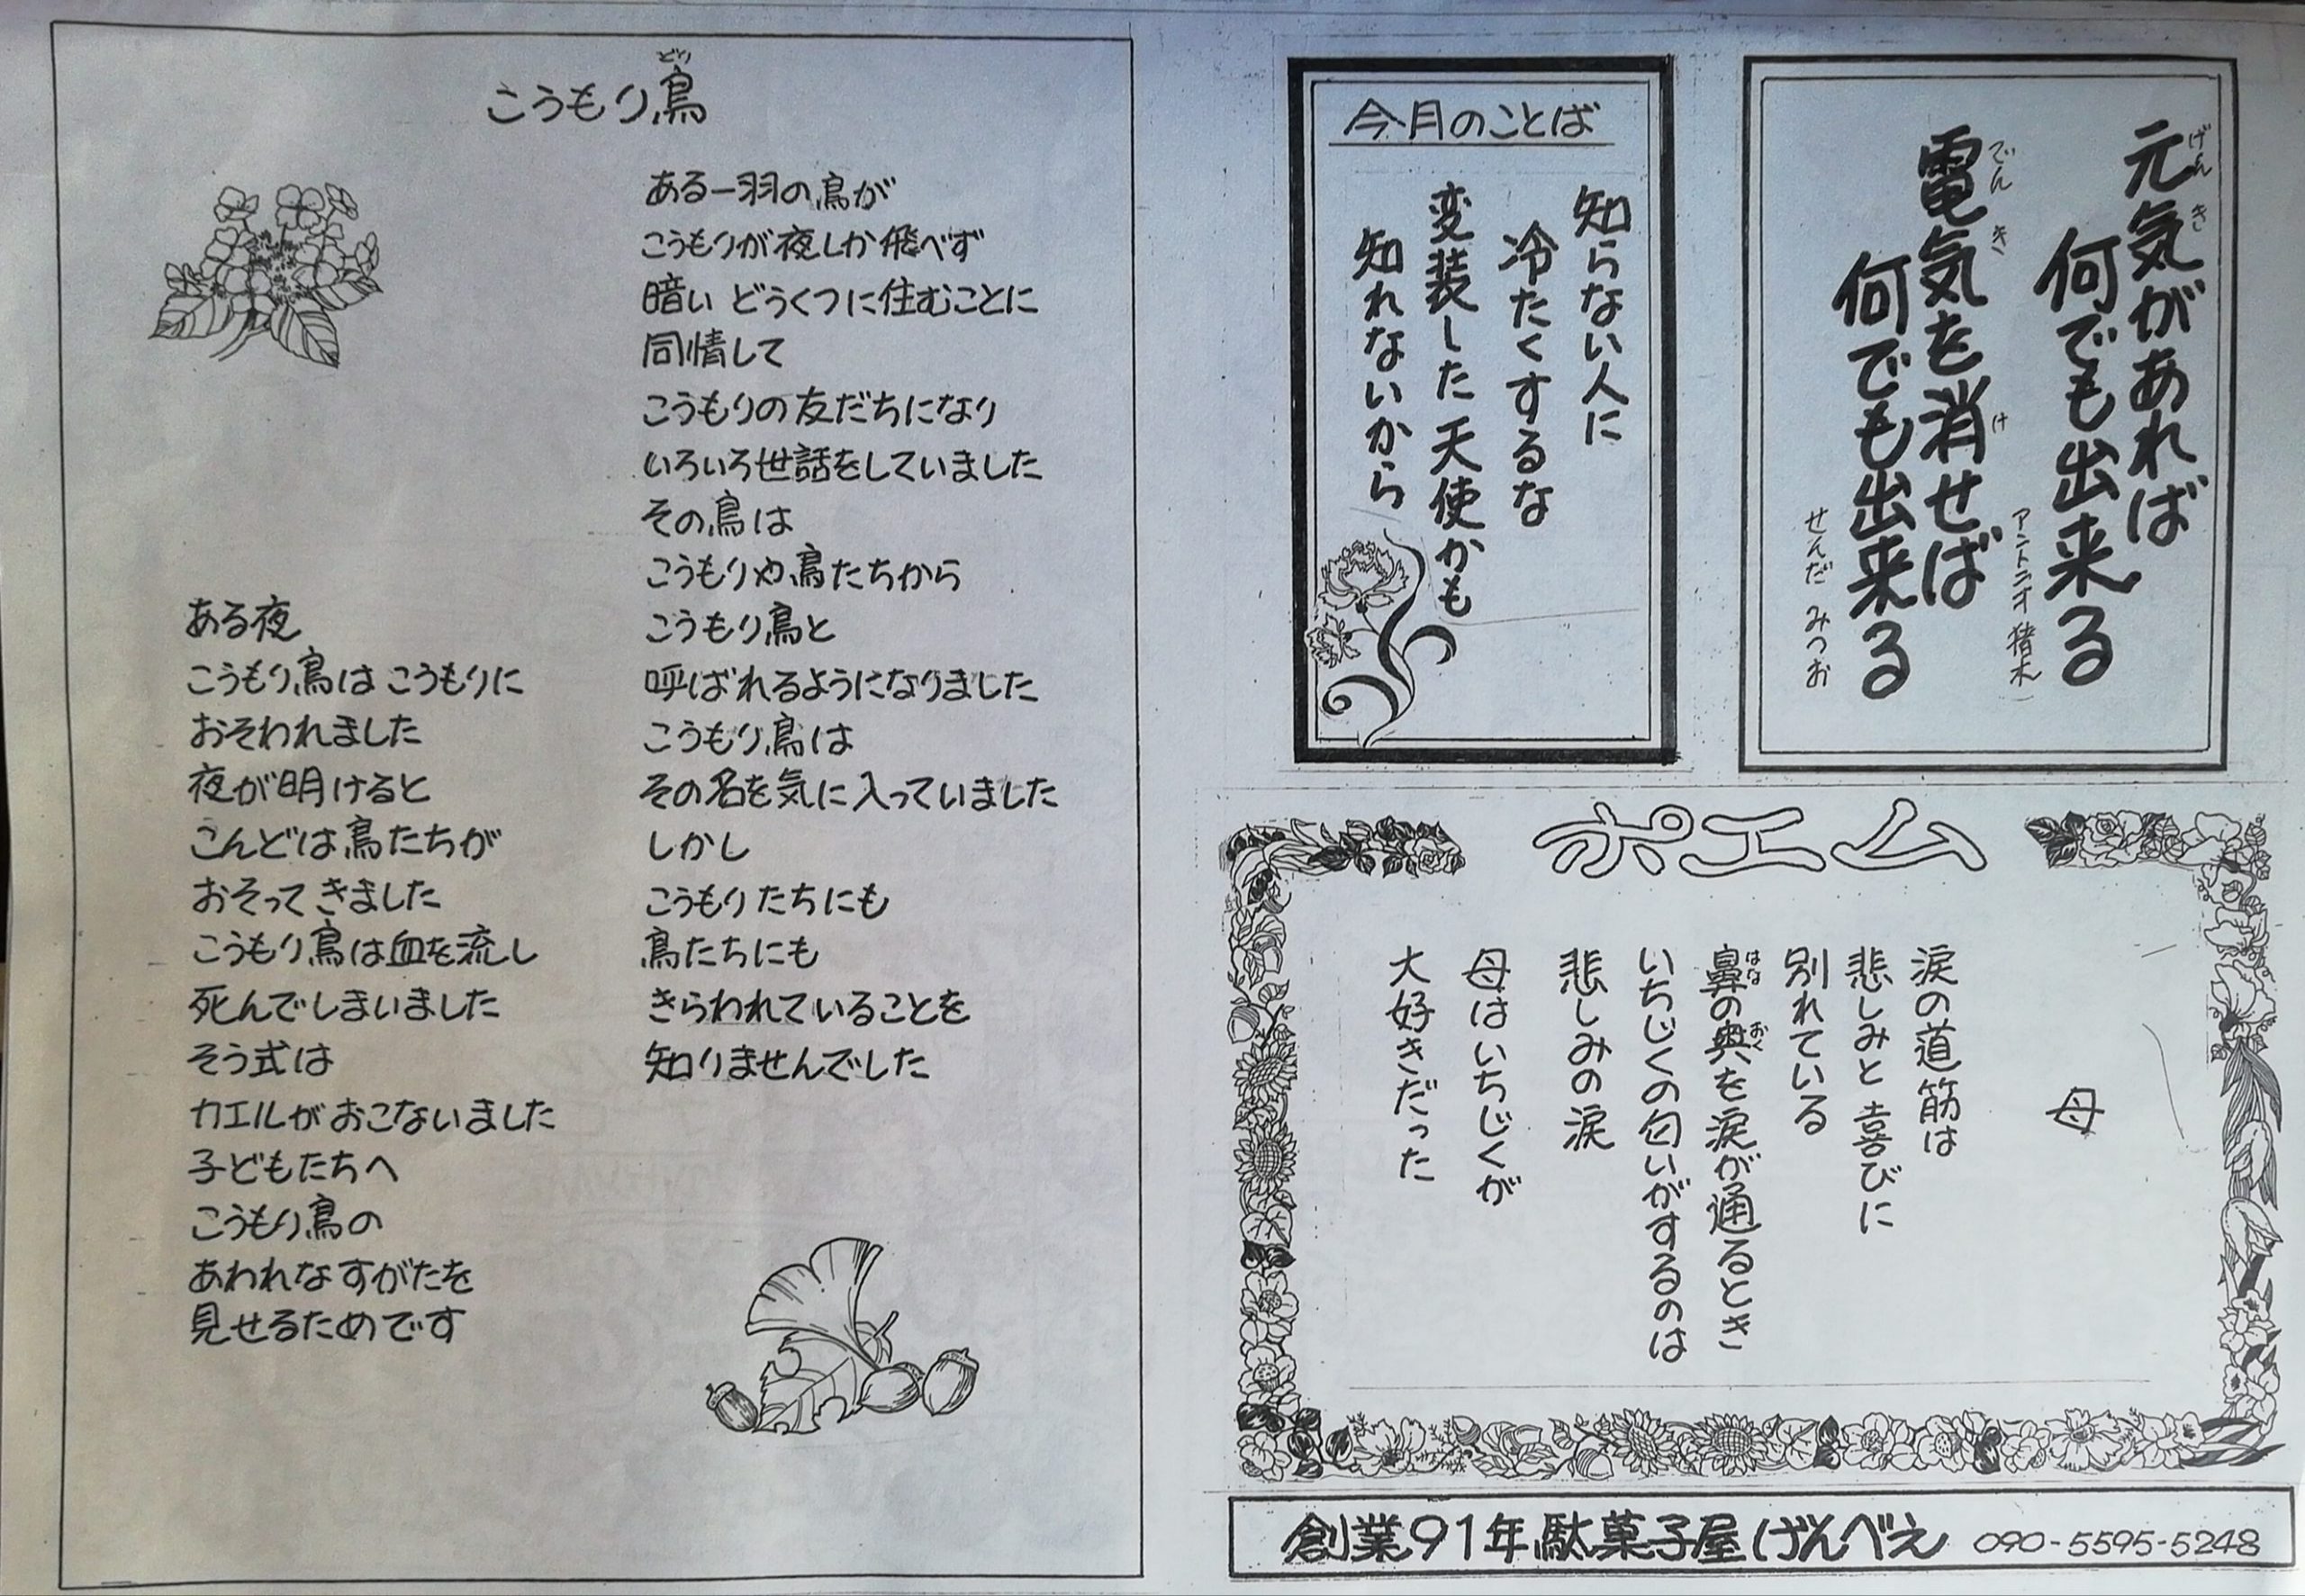 こうもり鳥
どり
ある一羽の鳥が
こうもりが夜しか飛べず
暗い どうくつに住むことに
同情して
こうもりの友だちになり
いろいろ世話をしていました
その鳥は
こうもりや鳥たちから
こうもり鳥と
呼ばれるようになりました
こうもり鳥は
その名を気に入っていました
しかし
こうもりたちにも
鳥たちにも
きらわれていることを
知りませんでした
ある夜
こうもり鳥は こうもりに
おそわれました
夜が明けると
こんどは鳥たちが
おそってきました
こうもり鳥は血を流し
死んでしまいました
そう式は
カエルがおこないました
子どもたちへ
こうもり鳥の
あわれなすがたを
見せるためです
元気があれば
げんき
何でも出来る
アントニオ猪木
電気を消せば
でんき け
何でも出来る
せんだ みつお
今月のことば
知らない人に
冷たくするな
変装した天使かも
知れないから
ポエム
母
涙の道筋は
悲しみと喜びに
別れている
鼻の奥を涙が通るとき
はな おく
いちじくの匂いがするのは
悲しみの涙
母はいちじくが
大好きだった
創業91年駄菓子屋げんべえ 090-5595-5248